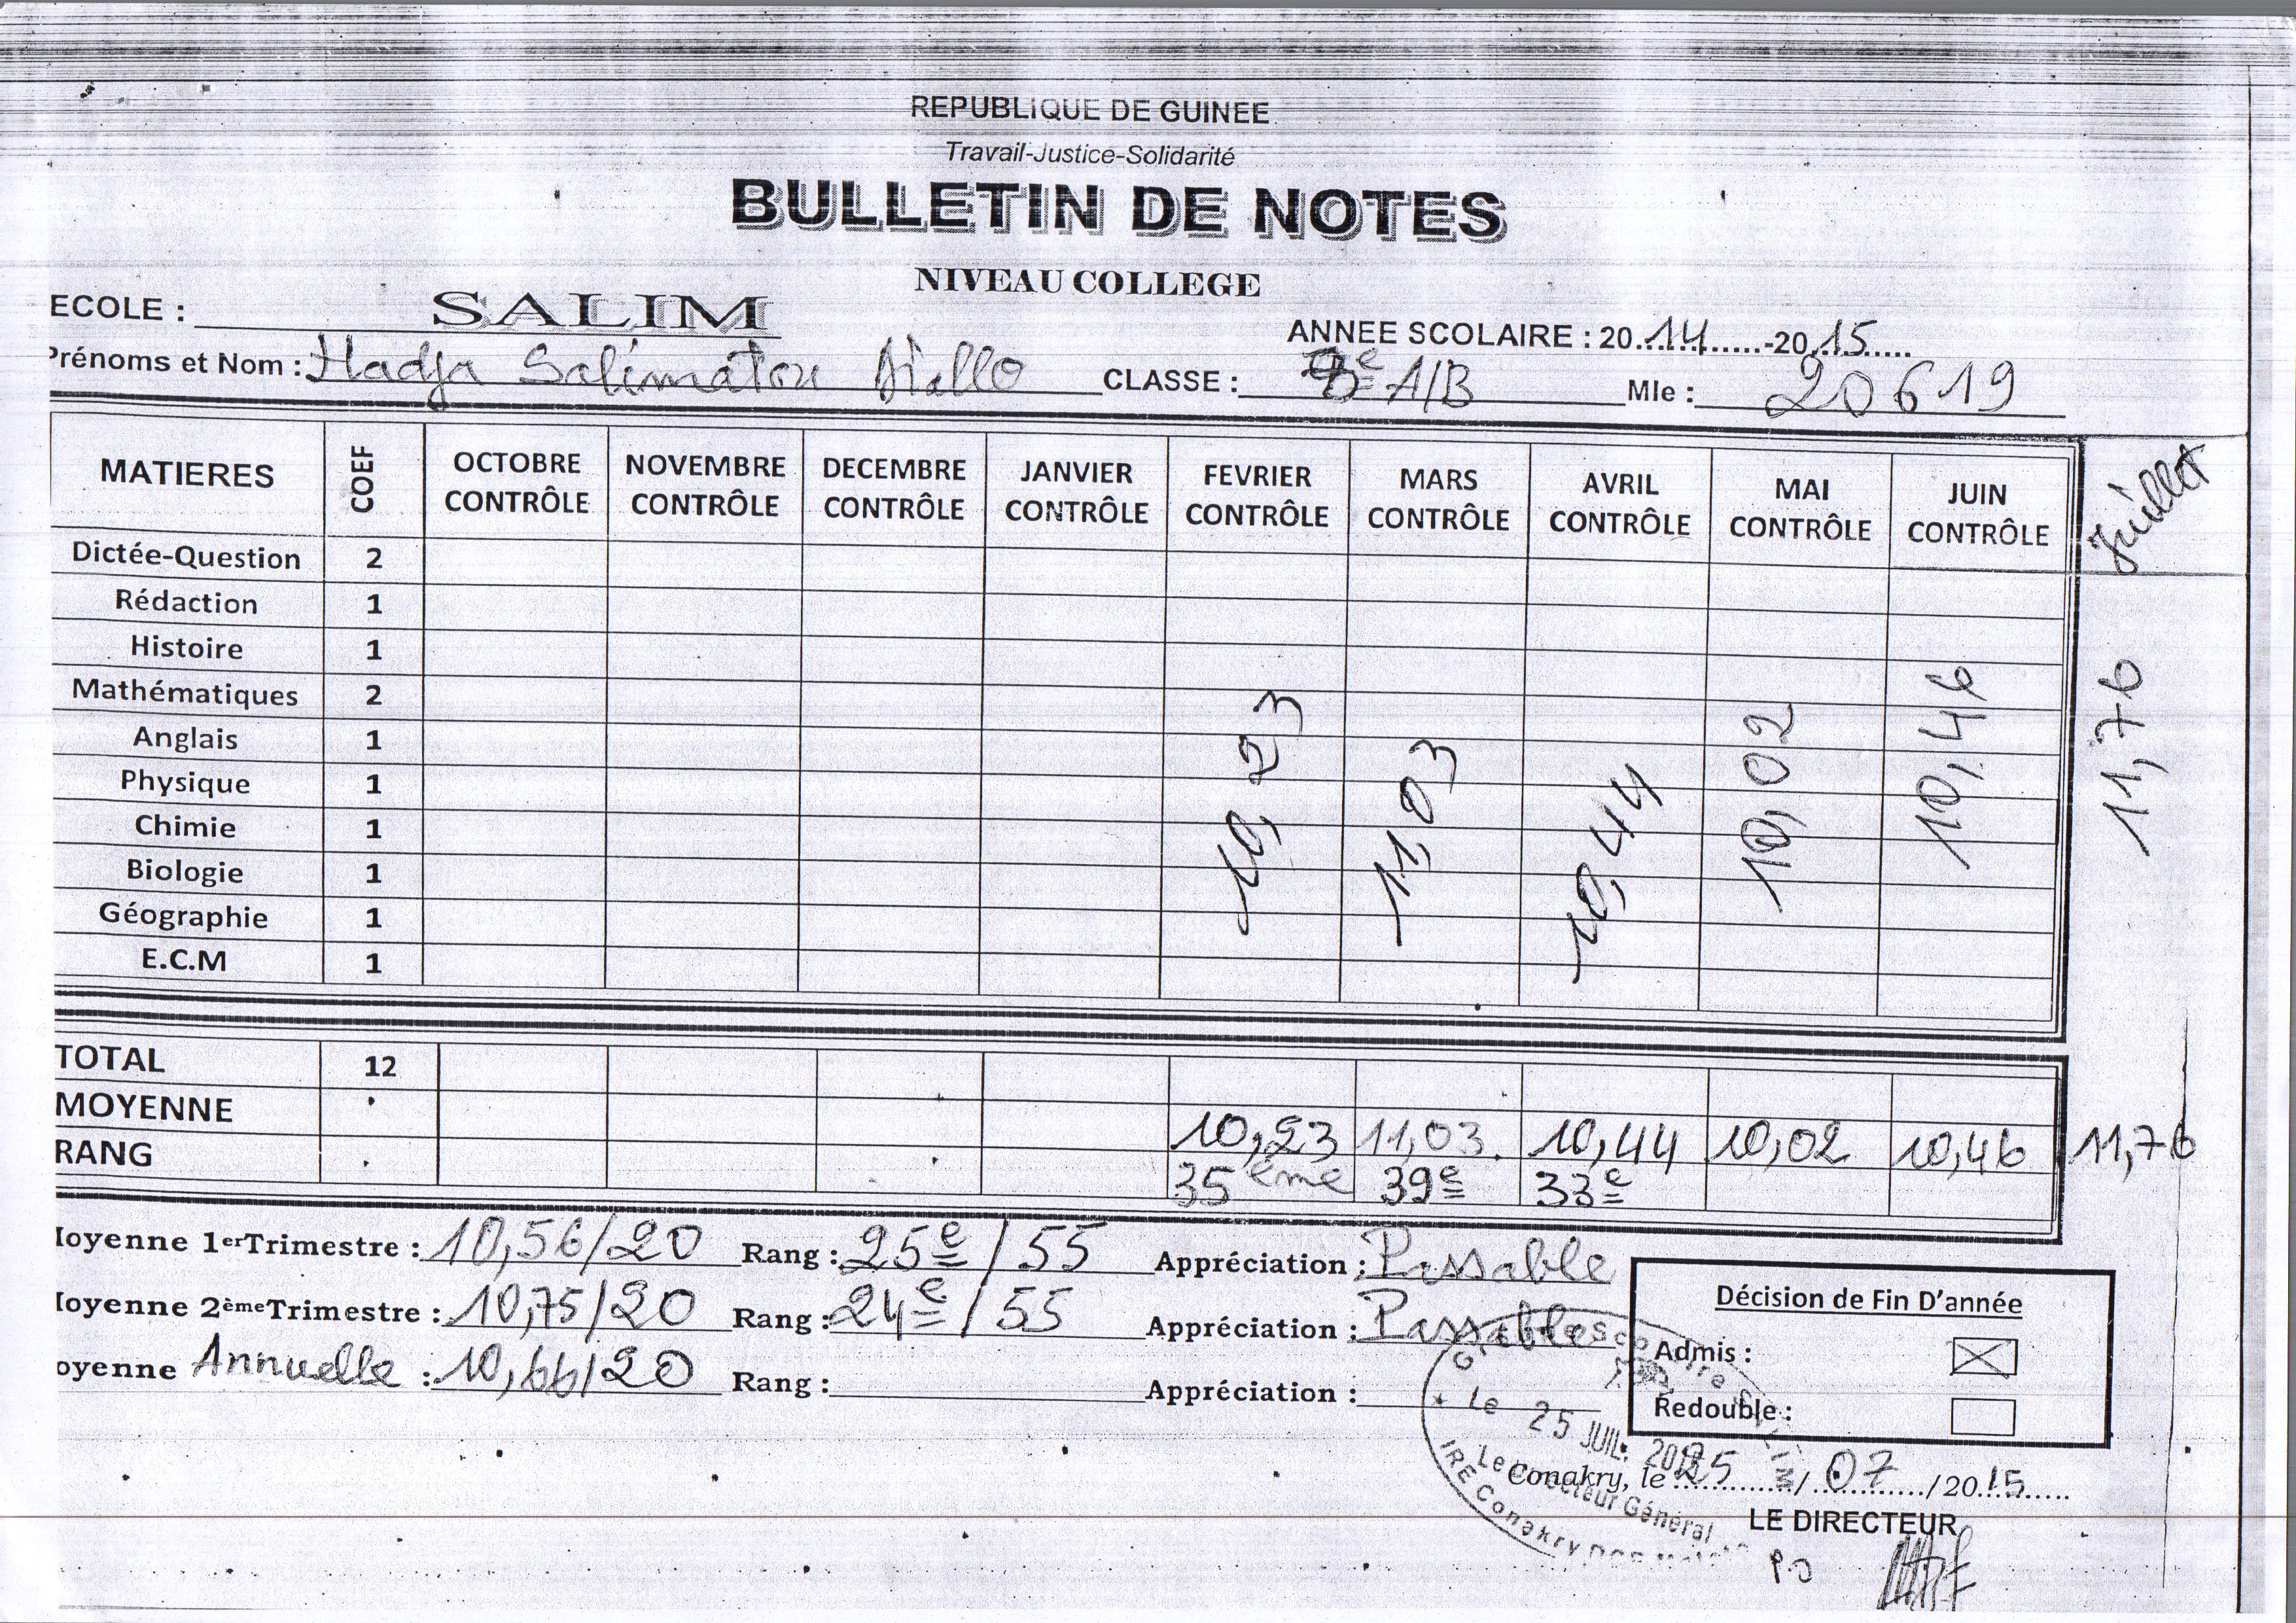 REPUBLIQUE DE GUINEE
Travail-Justice-Solidarité
BULLETIN DE NOTES
NIVEAU COLLEGE
ECOLE : SALIM
ANNEE SCOLAIRE : 2014-2015
Prénoms et Nom : Hadja Salimatou Diallo CLASSE : A/B Mle : 20619
MATIERES COEF OCTOBRE CONTRÔLE NOVEMBRE CONTRÔLE DECEMBRE CONTRÔLE JANVIER CONTRÔLE FEVRIER CONTRÔLE MARS CONTRÔLE AVRIL CONTRÔLE MAI CONTRÔLE JUIN CONTRÔLE Juillet
Dictée-Question 2
Rédaction 1
Histoire 1
Mathématiques 2
Anglais 1
Physique 1
Chimie 1
Biologie 1
Géographie 1
E.C.M 1
10,23 11,03 10,44 10,02 10,46 11,76
TOTAL 12
MOYENNE 10,23 11,03 10,44 10,02 10,46 11,76
RANG 35ème 39e 33e
oyenne 1erTrimestre : 10,56/20 Rang : 25e/55 Appréciation : Passable
oyenne 2èmeTrimestre : 10,75/20 Rang : 24e/55 Appréciation : Passable
oyenne Annuelle : 10,66/20 Rang : Appréciation :
Décision de Fin D'année
Admis :
Redouble :
Le 25 JUIL.
Le Directeur Général
Conakry, le 25/07/2015
LE DIRECTEUR
P.O